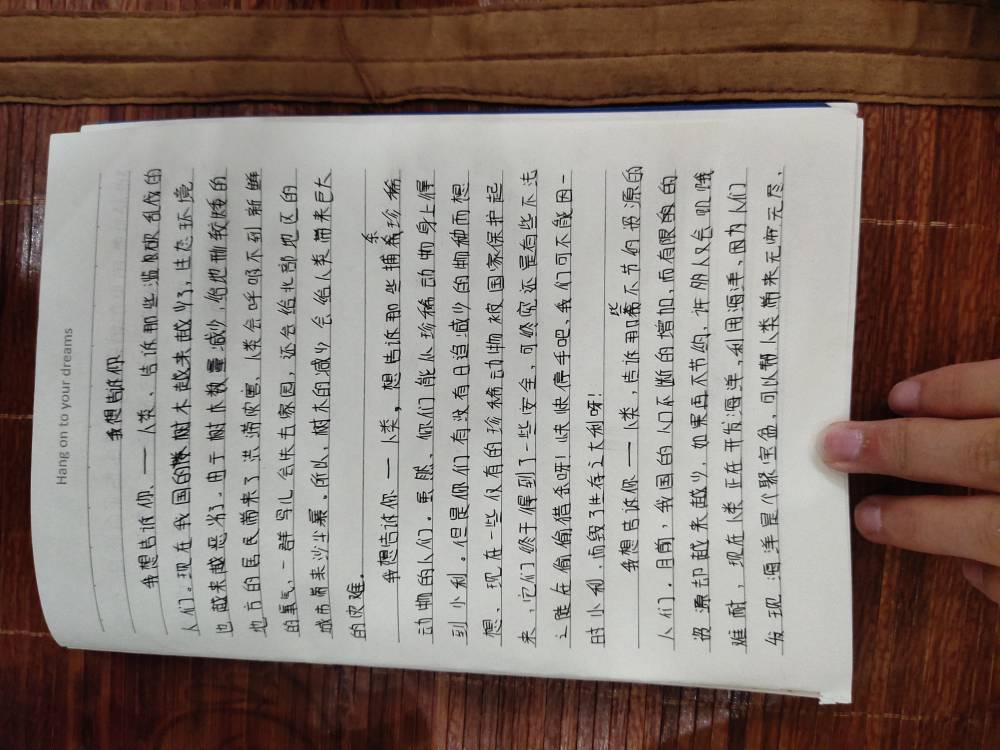 Hang on to your dreams
我想告诉你
我想告诉你、——人类、告诉那些滥砍乱伐的
人们。现在我国的树木越来越少了,生态环境
也越来越恶劣。由于树木数量减少,给地形较矮的
地方的居民带来了洪涝灾害、人类会呼吸不到新鲜
的氧气、一群鸟儿会失去家园,还会给北部地区的
城市带来沙尘暴。所以、树木的减少会给人类带来巨大
的灾难。
我想告诉你——人类,想告诉那些捕杀珍稀
动物的人们。虽然、你们能从珍稀动物身上得
到小利。但是你们有没有日追减少的物种而想
想、现在一些仅有的珍稀动物被国家保护起
来、它们终于得到了一些安全、可终究还是有些不法
之徒在偷偷猎杀呀!快快停手吧、我们可不能因一
时的小利、而毁了生存之大利呀!
我想告诉你——人类,告诉那些不节约资源的
人们、目前,我国的人口不断的增加,而有限的
资源却越来越少、如果再不节约,许朋人又会饥饿
难耐,现在人类正在开发海洋,利用海洋、因为人们
发现海洋是个聚宝盆,可以帮人类带来无穷无尽、